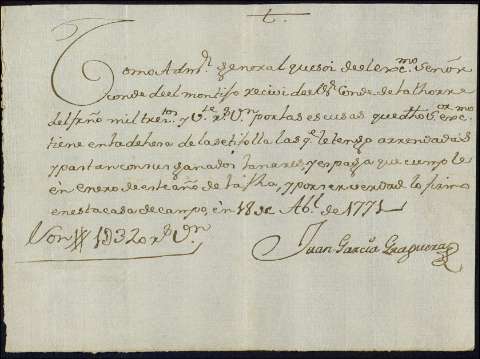 t.
Como Adm.r general que soi de el exc.mo Señor
Conde del montijo recivi de el Sr. Conde de la thorre
del fresno mil tres.tos y v.te rs. Vn por las escusas que dho Señor exc.mo
tiene en la dehesa de la las q.e le tengo arrendadas
y pastan con sus ganados lanares, y es paga que cumple
en Enero de este año de la fha, y por ser verdad lo firmo
en esta casa de campo, en 18 de Ab.l de 1771
Son 1320 rs. Vn
Juan Garcia